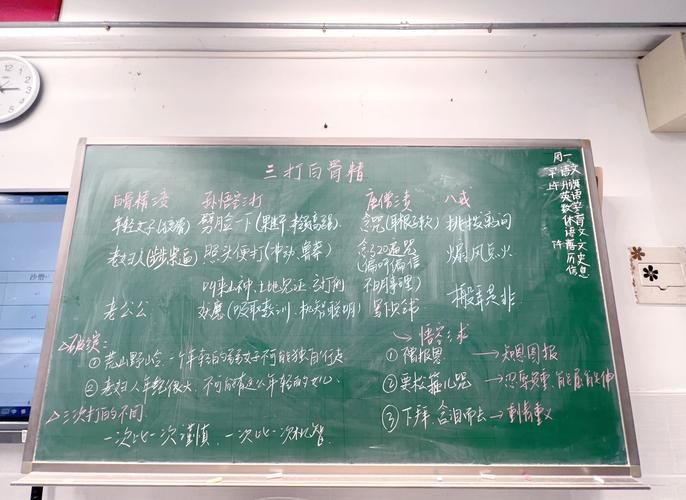 三打白骨精
白骨精三变 孙悟空三打 唐僧三责 八戒
年轻女子 劈脸一下(果断、本领高强) 念咒(耳根子软) 挑拨离间
老妇人 照头便打(冲动、鲁莽) 念了20遍咒 煽风点火
(偏听偏信
不明事理)
叫来山神、土地见证 才打
老公公 (吸取教训、机智聪明) 搬弄是非
破绽:
① 荒山野岭、一个年轻的弱女子不可能独自行走
② 老妇人年龄很大、不可能有这么年轻的女儿、
三次打的不同
一次比一次谨慎、一次比一次机智
悟空三求
① 借报恩 → 知恩图报
② 要松箍儿咒 → 忍辱负重、能屈能伸
③ 下拜、含泪而去 → 重情重义
周一
早 语文
上午 升旗
英语
数学
体育
语文
下午 语文
历史
信息